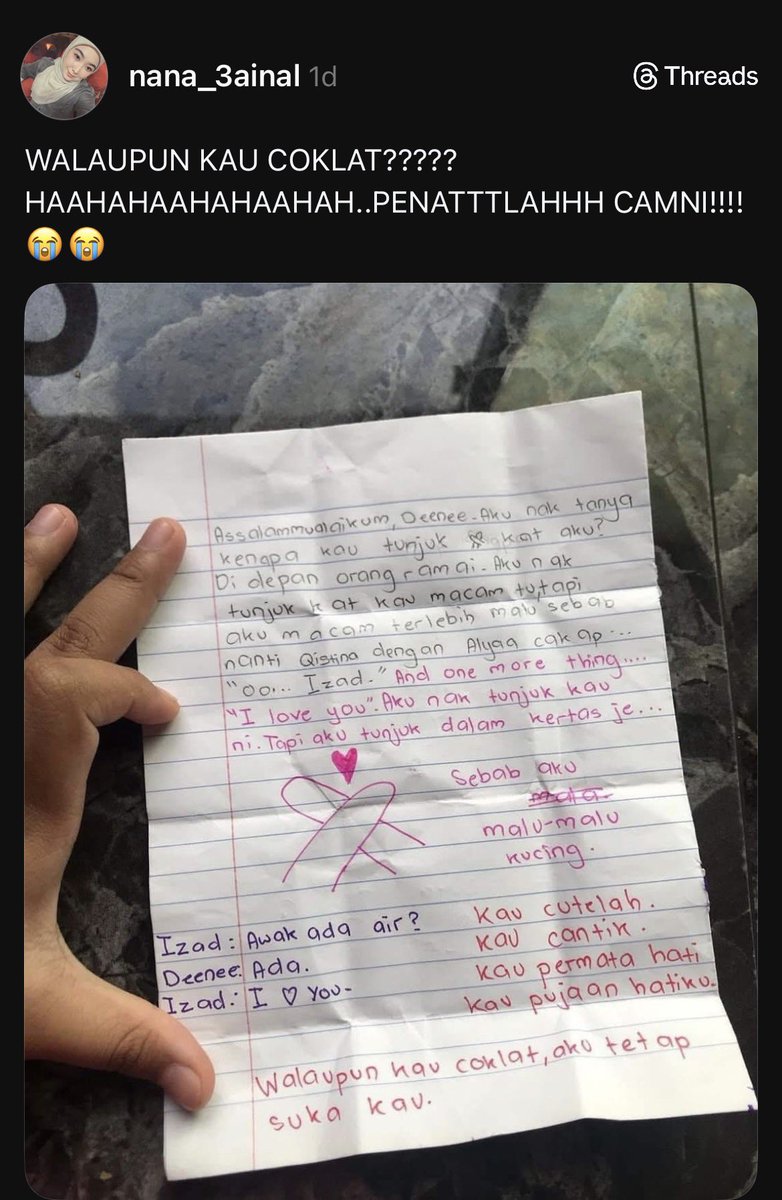 nana_3ainal 1d
Threads
WALAUPUN KAU COKLAT?????
HAAHAHAAHAHAAHAH..PENATTTLAHHH CAMNI!!!!
😭😭
Assalammualaikum, Deenee. Aku nak tanya
kenapa kau tunjuk kat aku?
Di depan orang ramai. Aku nak
tunjuk kat kau macam tu, tapi
aku macam terlebih malu sebab
nanti Qistina dengan Alyaa cakap...
"oo... Izad." And one more thing....
"I love you". Aku nak tunjuk kau
ni. Tapi aku tunjuk dalam kertas je...
Sebab aku
malu-malu
kucing.
Izad: Awak ada air?
Deenee: Ada.
Izad: I ♡ You-
Kau cutelah.
Kau cantik.
Kau permata hati
Kau pujaan hatiku.
Walaupun kau coklat, aku tetap
suka kau.